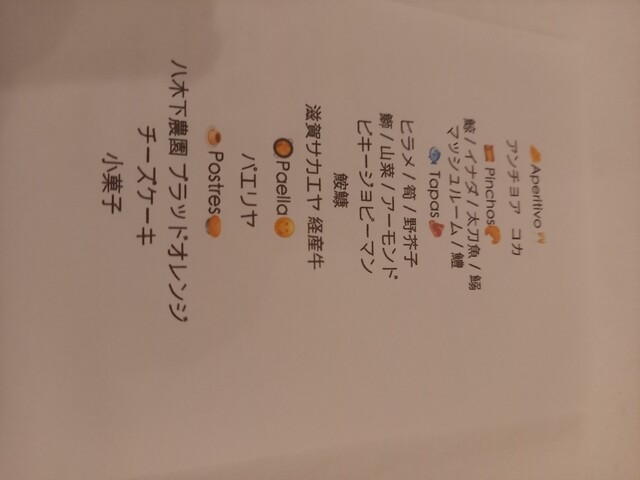 Aperitivo
アンチョア コカ
Pinchos
鯨 / イナダ / 太刀魚 / 鰯
マッシュルーム / 鱧
Tapas
ヒラメ / 筍 / 野芥子
鰤 / 山菜 / アーモンド
ピキージョピーマン
鮟鱇
滋賀サカエヤ 経産牛
Paella
パエリヤ
Postres
八木下農園 ブラッドオレンジ
チーズケーキ
小菓子